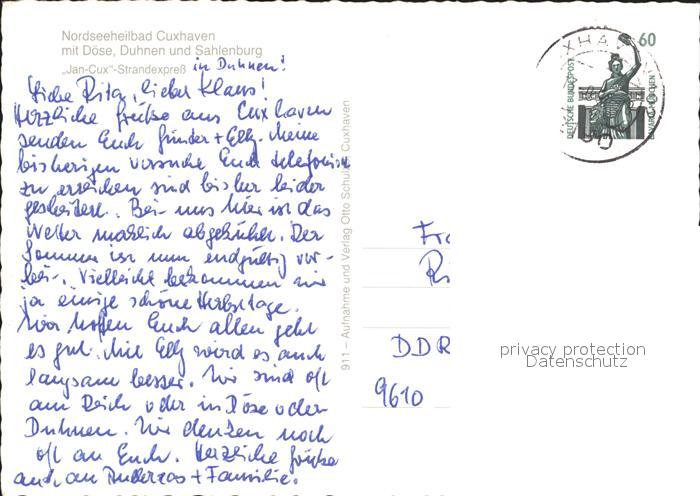 Nordseeheilbad Cuxhaven
mit Döse, Duhnen und Sahlenburg
„Jan-Cux"-Strandexpreß in Duhnen!
Liebe Rita, lieber Klaus!
Herzliche Grüße aus Cuxhaven
senden Euch Günter + Elly. Meine
bisherigen Versuche Euch telefonisch
zu erreichen sind bisher leider
gescheitert. Bei uns hier ist das
Wetter merklich abgekühlt. Der
Sommer ist nun endgültig vor-
bei. Vielleicht bekommen wir
ja einige schöne Herbsttage.
Wir hoffen Euch allen geht
es gut. Mit Elly wird es auch
langsam besser. Wir sind oft
am Deich oder in Döse oder
Duhnen. Wir denken noch
oft an Euch. Herzliche Grüße
auch an + Familie.
911 – Aufnahme und Verlag Otto Schulz, Cuxhaven
60
DEUTSCHE BUNDESPOST
BAVARIA MÜNCHEN
Fr
Ri
DDR
9610
privacy protection
Datenschutz